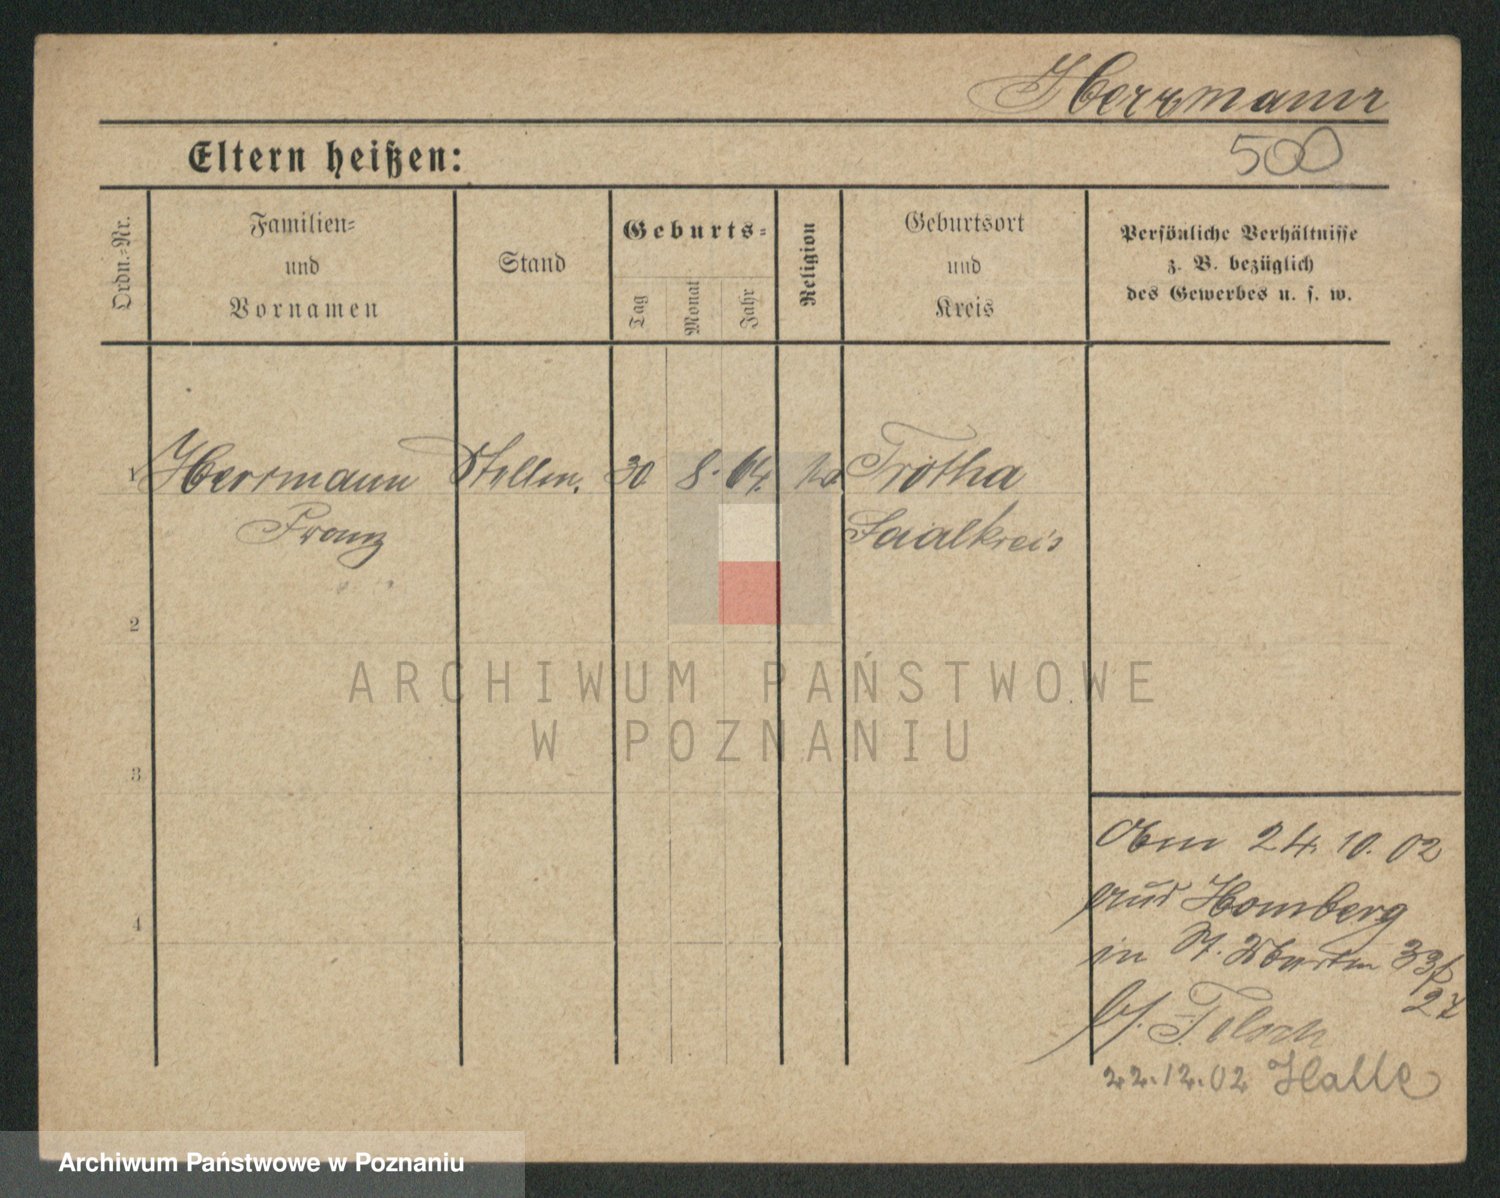 Herrmann
Eltern heißen:
500
Ordn.-Nr.
Familien-
und
Vornamen
Stand
Geburts-
Tag
Monat
Jahr
Religion
Geburtsort
und
Kreis
Persönliche Verhältnisse
z. B. bezüglich
des Gewerbes u. s. w.
1 Herrmann Stellm. 30 8. 64. Trotha
Franz Saalkreis
2
3
4
24. 10. 02
aus Homberg
in St. Martin 33
27
b/. Felsch
22.12.02 Halle
ARCHIWUM PAŃSTWOWE
W POZNANIU
Archiwum Państwowe w Poznaniu